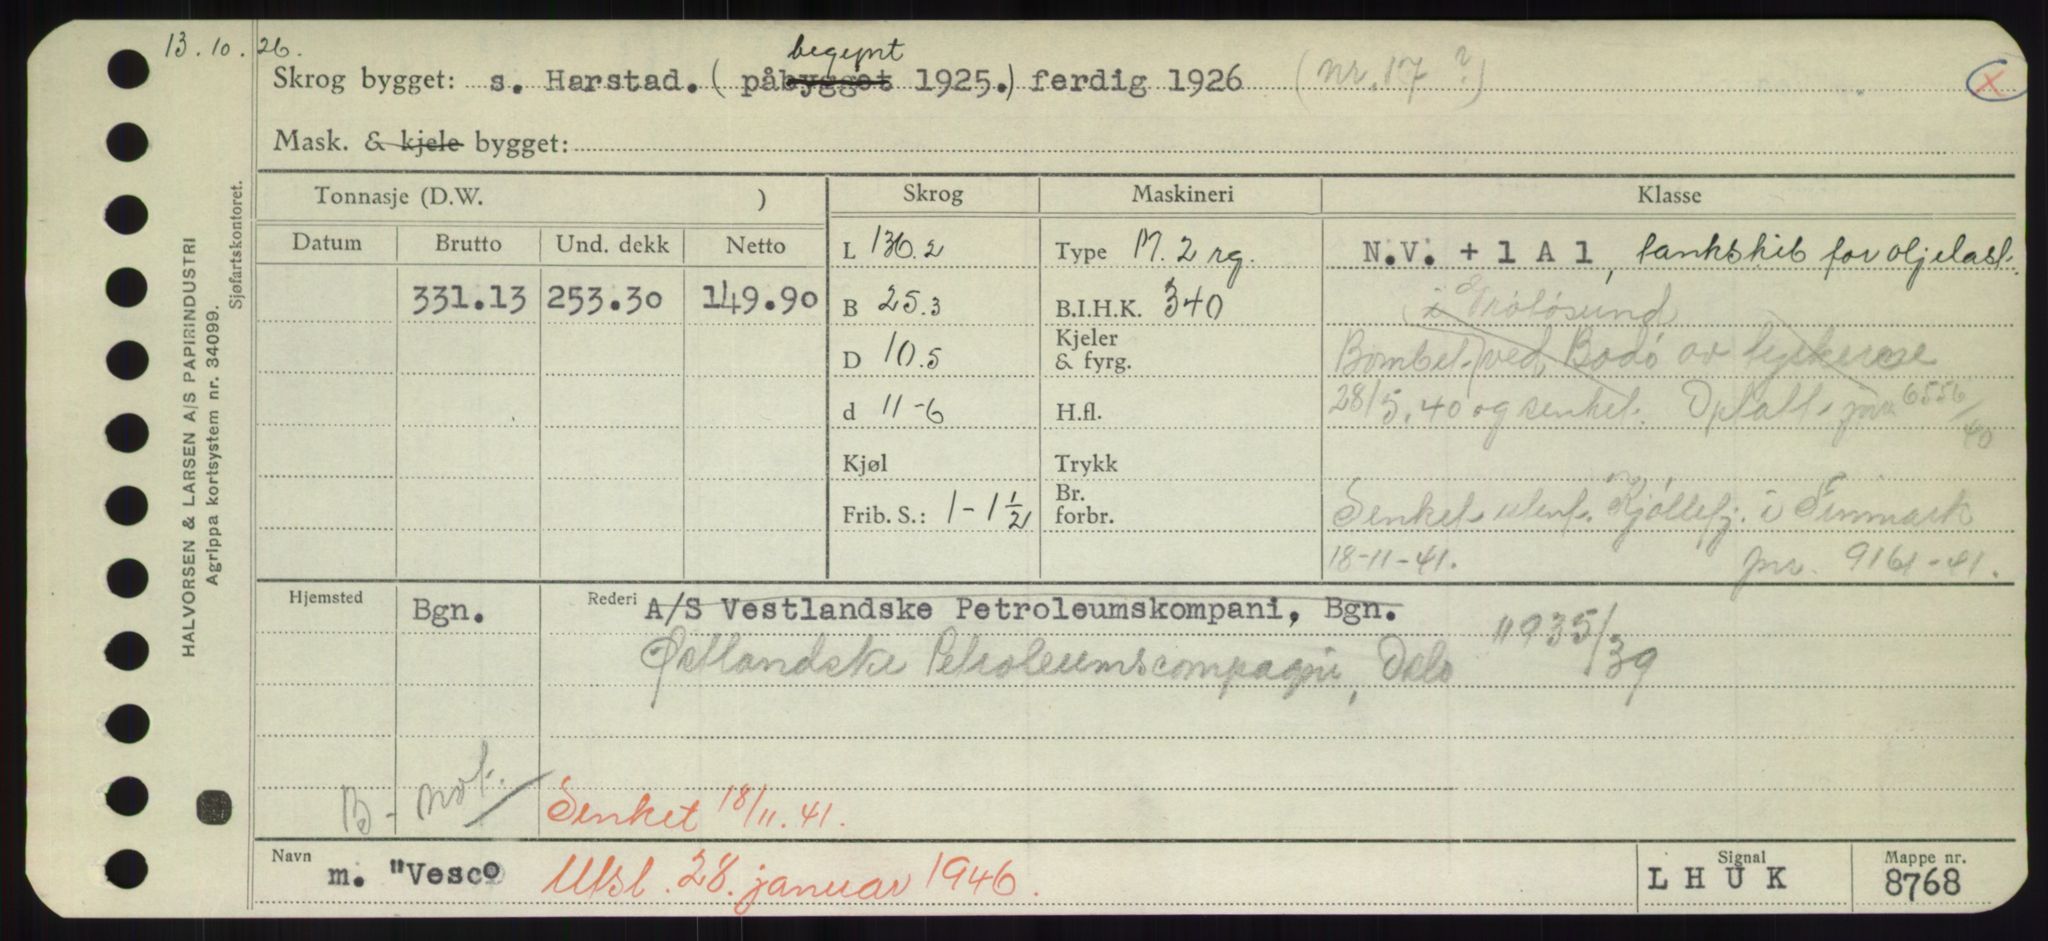 13.10.26.
begynt
Skrog bygget: s. Harstad. (påbygget 1925.) ferdig 1926 (nr. 17 ?) X
Mask. & kjele bygget:
HALVORSEN & LARSEN A/S PAPIRINDUSTRI
Agrippa kortsystem nr. 34099.
Sjøfartskontoret.
Tonnasje (D.W. ) Skrog Maskineri Klasse
Datum Brutto Und. dekk Netto L 136.2 Type M. 2 rg. N.V. + 1 A 1, tankskib for oljelast.
331.13 253.30 149.90 B 25.3 B.I.H.K. 340
D 10.5 Kjeler & fyrg. Bombet ved Bodö av tyskerne
d 11-6 H.fl. 28/5.40 og senket. pnr. 6556/40
Kjøl Trykk
Frib. S.: 1 - 1 ½ Br. forbr. Senket utenf. Kjöllefj. i Finmark
18-11-41. pnr. 9161-41.
Hjemsted Bgn. Rederi A/S Vestlandske Petroleumskompani, Bgn.
Østlandske Petroleumscompagni, Oslo 11935/39
B - not.
Senket 18/11.41.
Navn m. "Vesco Utsl. 28. januar 1946. Signal LHUK Mappe nr. 8768